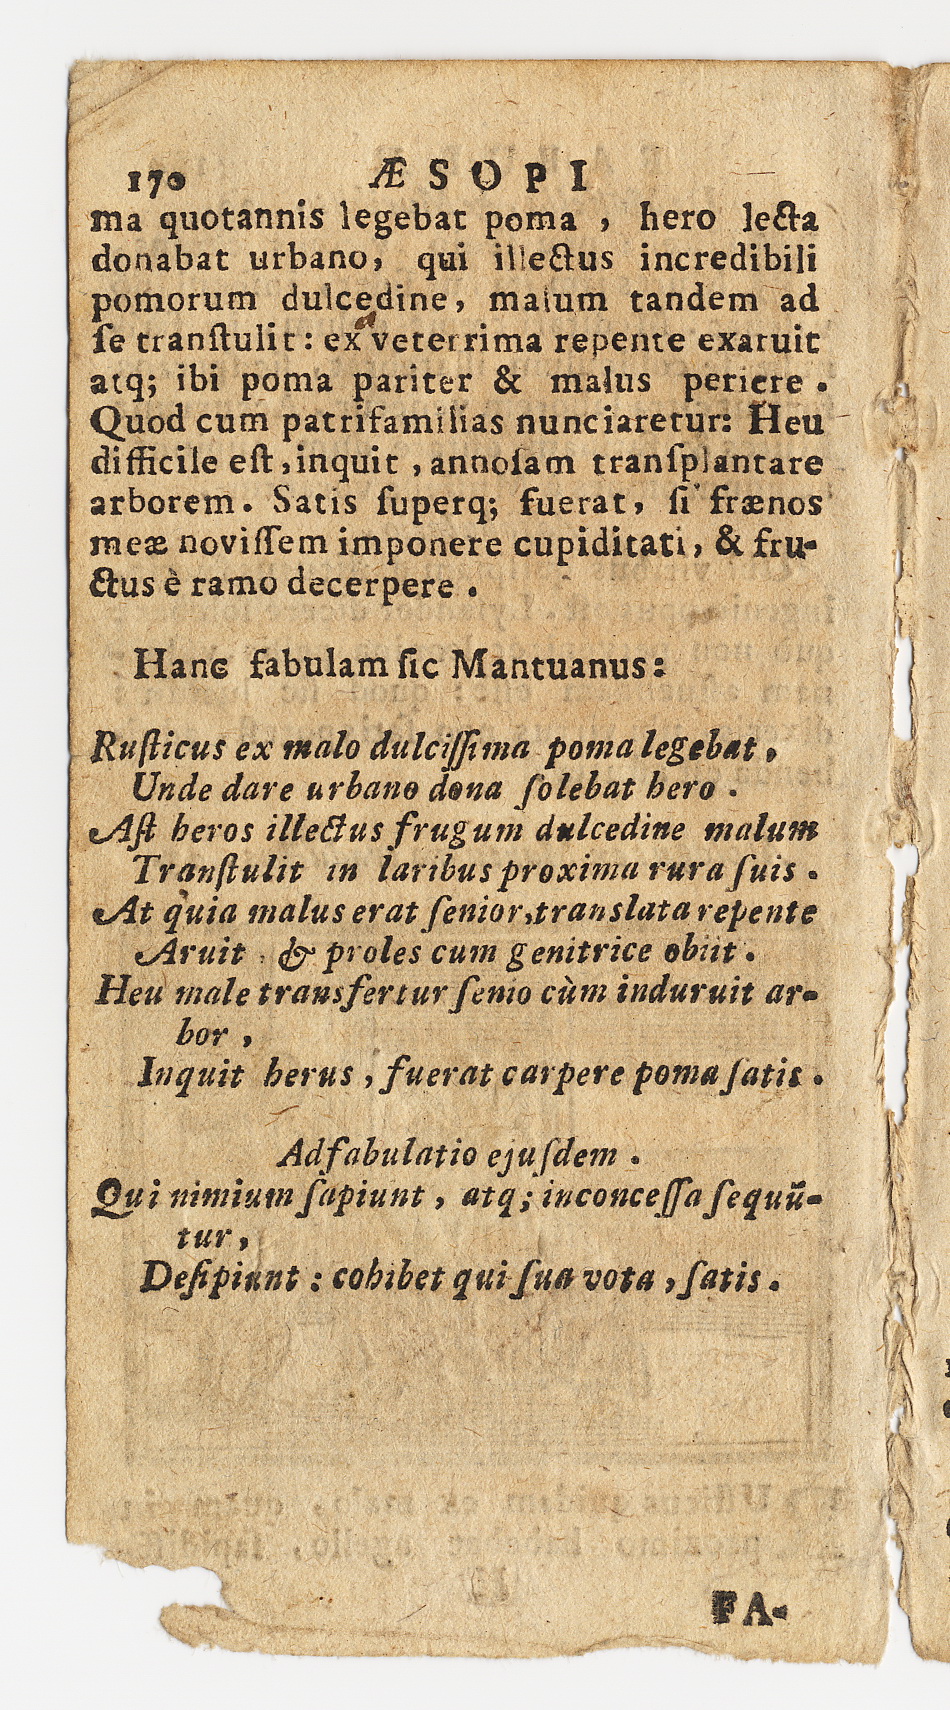 170 ÆSOPI
ma quotannis legebat poma , hero lecta
donabat urbano, qui illectus incredibili
pomorum dulcedine, malum tandem ad
ſe tranſtulit: ex veterrima repente exaruit
atq; ibi poma pariter & malus periere .
Quod cum patrifamilias nunciaretur: Heu
difficile eſt, inquit , annoſam tranſplantare
arborem. Satis ſuperq; fuerat, ſi frænos
meæ noviſſem imponere cupiditati, & fru-
ctus è ramo decerpere .
Hanc fabulam ſic Mantuanus:
Ruſticus ex malo dulciſſima poma legebat,
Unde dare urbano dona ſolebat hero .
Aſt heros illectus frugum dulcedine malum
Tranſtulit in laribus proxima rura ſuis .
At quia malus erat ſenior, translata repente
Aruit & proles cum genitrice obiit .
Heu male transfertur ſenio cùm induruit ar-
bor ,
Inquit herus , fuerat carpere poma ſatis .
Adfabulatio ejuſdem .
Qui nimium ſapiunt , atq; inconceſſa ſequũ-
tur,
Deſipiunt : cohibet qui ſua vota , ſatis .
FA-